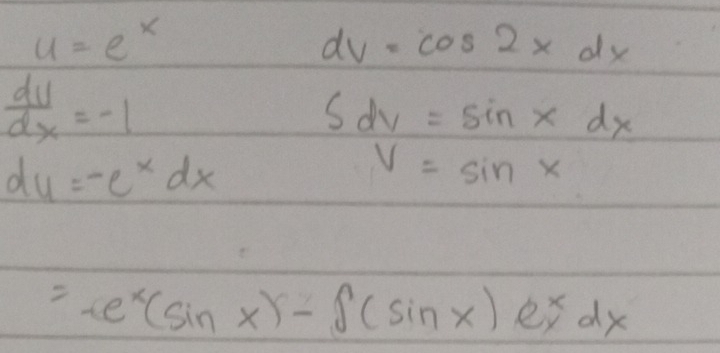 u = e^x dv = cos 2x dx
du/dx = -1 S dv = sin x dx
du = -e^x dx V = sin x
= -e^x (sin x) - ∫(sin x) e^x dx